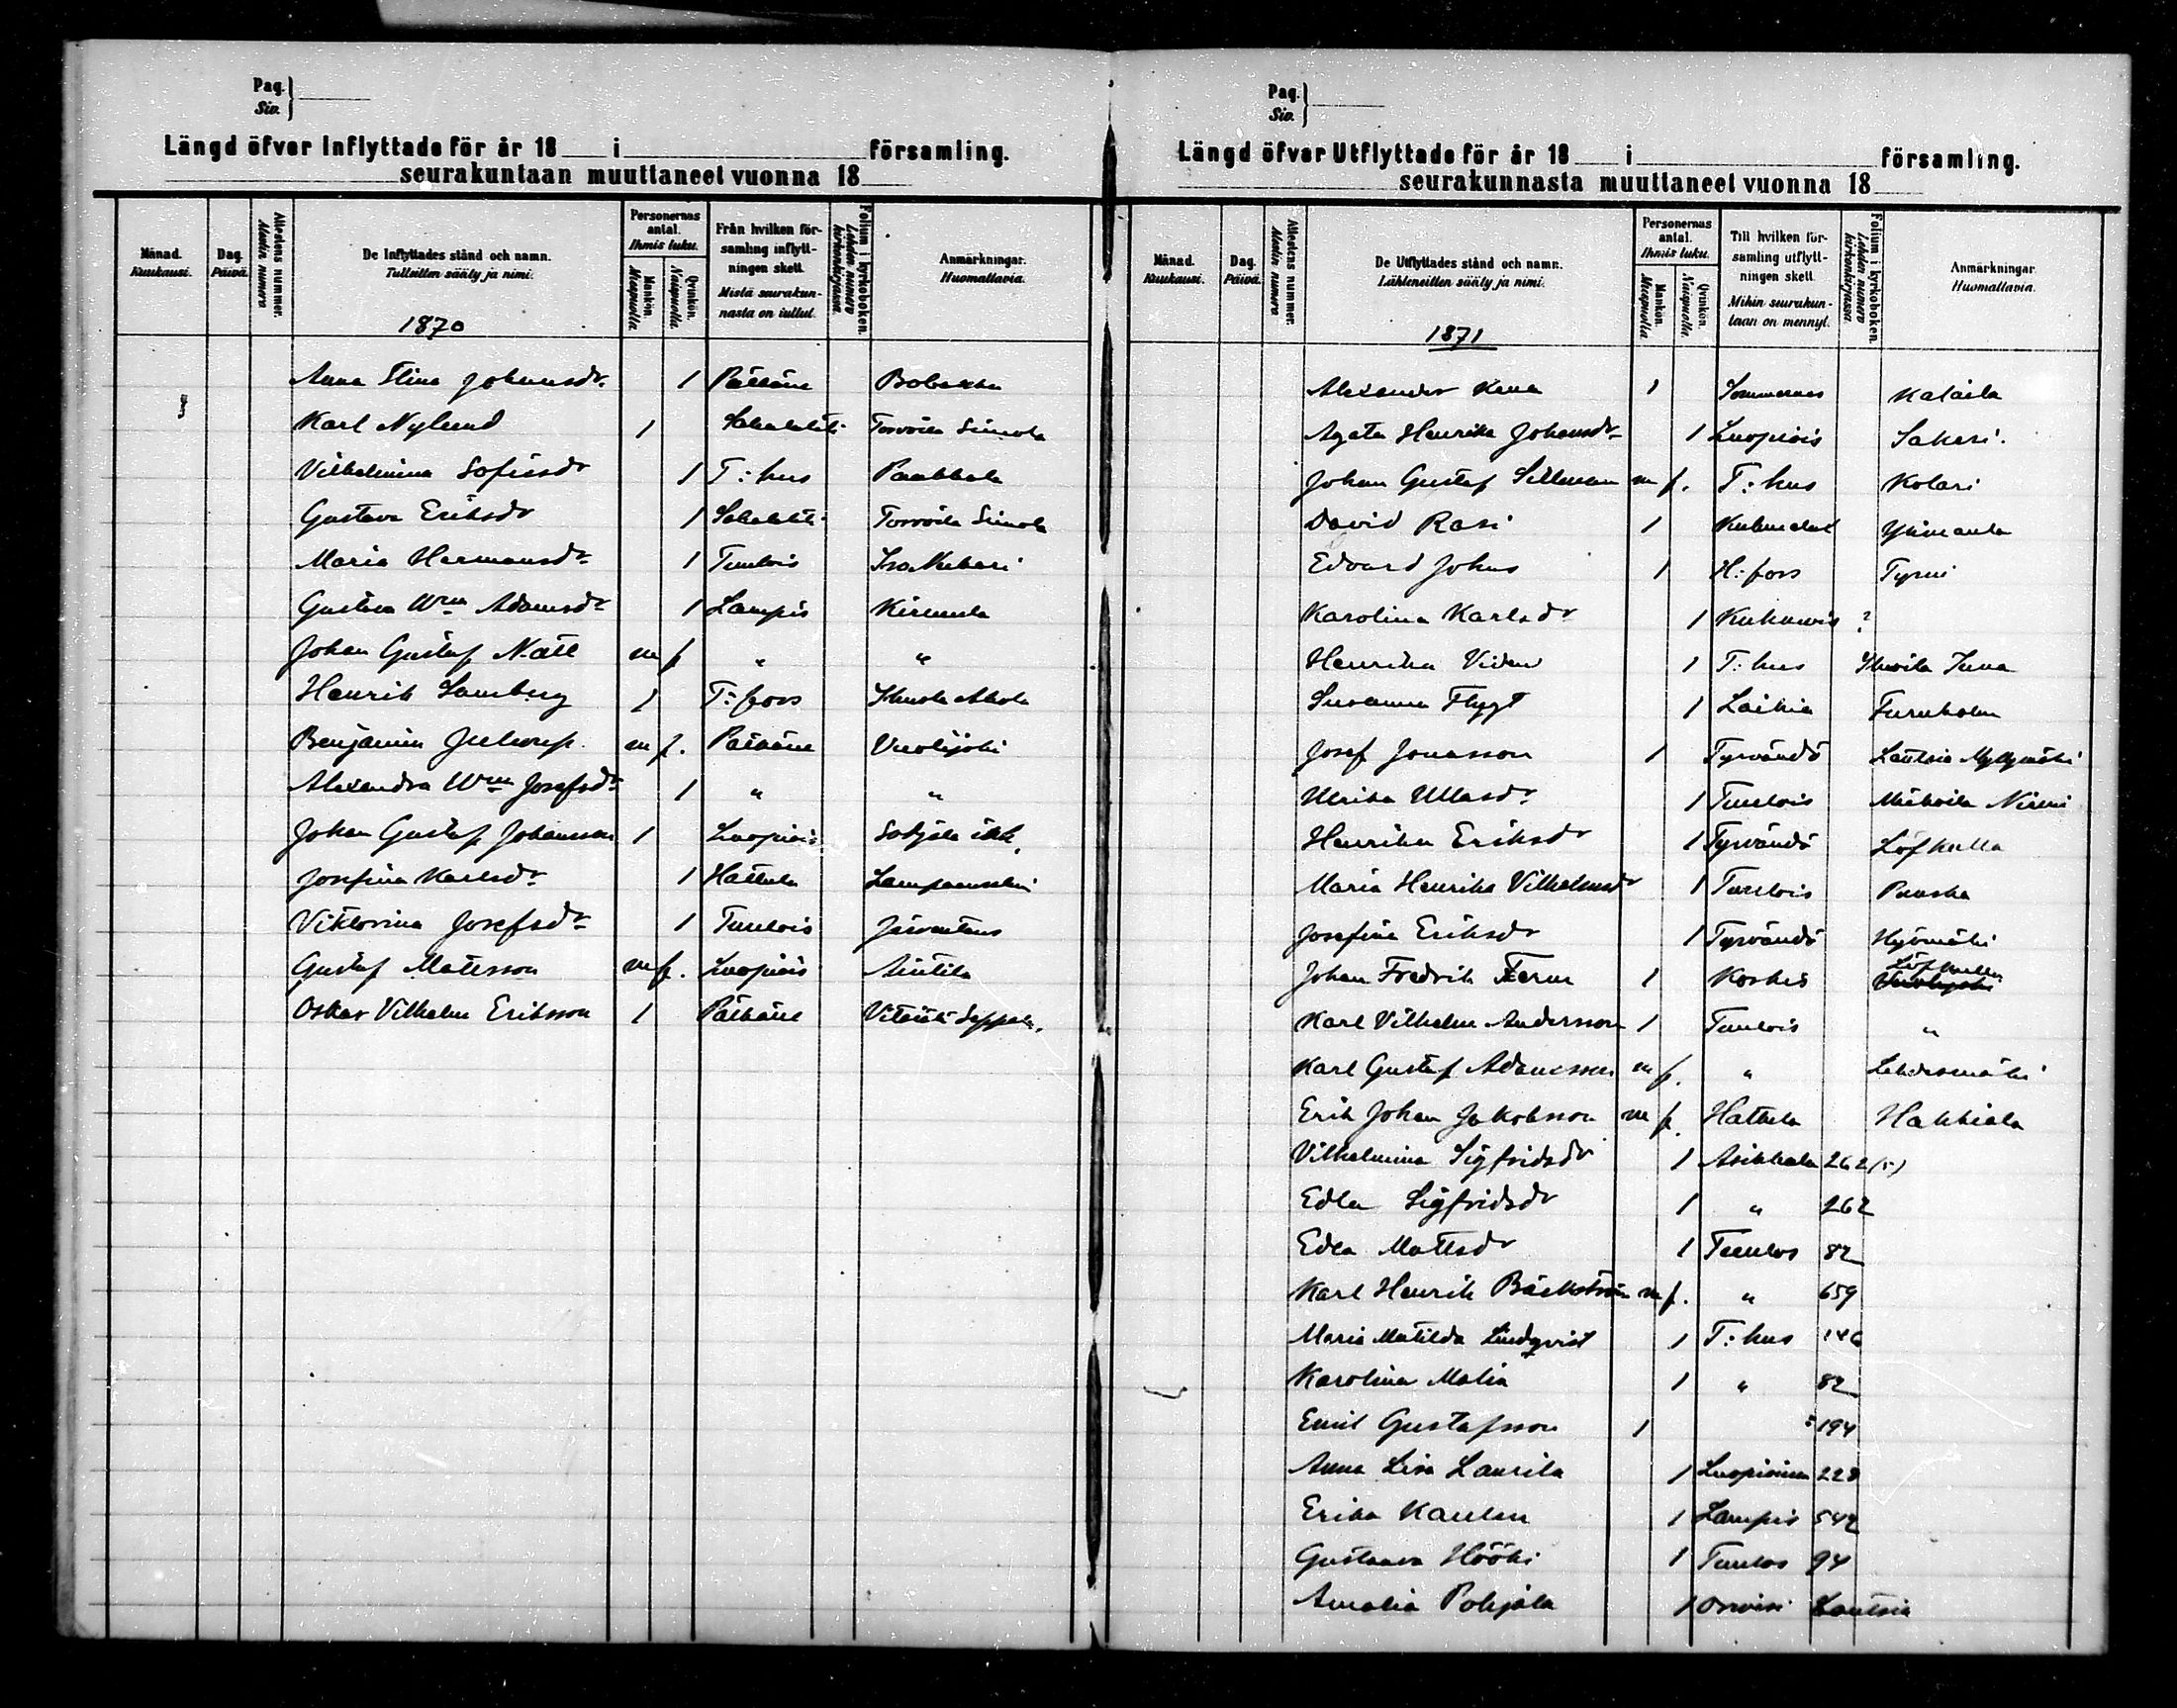 Pag.
Siv.
Längd öfver Inflyttade för år 18 i församling.
seurakuntaan muuttaneet vuonna 18
Månad.
Kuukausi.
Dag.
Päivä.
Attestens nummer.
Attestin numero
De Inflyttades stånd och namn.
Tulleitten sääty ja nimi.
1870
Personernas antal.
Ihmis luku.
Mankön.
Miespuolia
Qvinkön.
Naispuolia
Från hvilken församling inflyttningen skett
Mistä seurakunnasta on tullut.
Folium i kyrkoboken.
Lehden numero kirkonkirjassa.
Anmärkningar.
Huomattavia.
Anna Stina Johansdr 1 Pälkäne
Karl Nylund 1 Sahalahti Torvoila Simola
Vilhelmina Sofiasdr 1 T:hus Pankkala
Gustava Eriksdr 1 Sahalahti Torvoila Simola
Maria Hermansdr 1 Tuulois Iso Kukari
Gustava Wma Adamsdr 1 Lampis
Johan Gustaf Natt m f " "
Henrik Samberg 1 T:fors
Benjamin m f. Pälkäne Vuolijoki
Alexandra Wma Josefsdr 1 " "
Johan Gustaf Johansson 1 Luopiois
Josefina Karlsdr 1 Hattula
Viktorina Josefsdr 1 Tuulois Järventaus
Gustaf Matsson m f. Luopiois Äintilä
Oskar Vilhelm Eriksson 1 Pälkäne Seppälä
Pag.
Siv.
Längd öfver Utflyttade för år 18 i församling.
seurakunnasta muuttaneet vuonna 18
Månad.
Kuukausi.
Dag.
Päivä.
Attestens nummer.
Attestin numero
De Utflyttades stånd och namn.
Lähteneitten sääty ja nimi.
1871
Personernas antal.
Ihmis luku.
Mankön.
Miespuolia
Qvinkön.
Naispuolia
Till hvilken församling utflyttningen skett.
Mihin seurakuntaan on mennyt.
Folium i kyrkoboken.
Lehden numero kirkonkirjassa.
Anmärkningar.
Huomattavia.
Alexander 1 Sommernes Kataila
Agata Henrika Johansdr 1 Luopiois Sakari.
Johan Gustaf Sillman m f. T:hus Kolari
David Rasi 1 Kuhmalax
Edvard Johns 1 H:fors Tyrni
Karolina Karlsdr 1 ?
Henrika Viden 1 T:hus
Susanna Flygt 1 Laihia Furuholm
Josef Jonasson 1 Tyrväntö Lautsia Myllymäki
Ulrika Ullasdr 1 Tuulois
Henrika Eriksdr 1 Tyrväntö Löfkulla
Maria Henrika Vilhelmsdr 1 Tuulois
Josefina Eriksdr 1 Tyrväntö
Johan Fredrik Ferm 1 Koskis Löfkulla
Karl Vilhelm Andersson 1 Tuulois "
Karl Gustaf Adamsson m f. " Lehdesmäki
Erik Johan Jakobsson m f. Hattula Hakkiala
Vilhelmina Sigfridsdr 1 Asikkala 262
Edla Sigfridsdr 1 " 262
Edla Mattsdr 1 Tuulos 82
Karl Henrik Bäckström m f. " 659
Maria Matilda Lindqvist 1 T:hus 146
Karolina Malin 1 " 82
Emil Gustafsson 1 194
Anna Lisa Laurila 1 Luopioinen 228
Erika 1 Lampis 542
Gustaava Hööki 1 Tuulos 94
Amalia Pohjola 1 Orivesi Lautsia